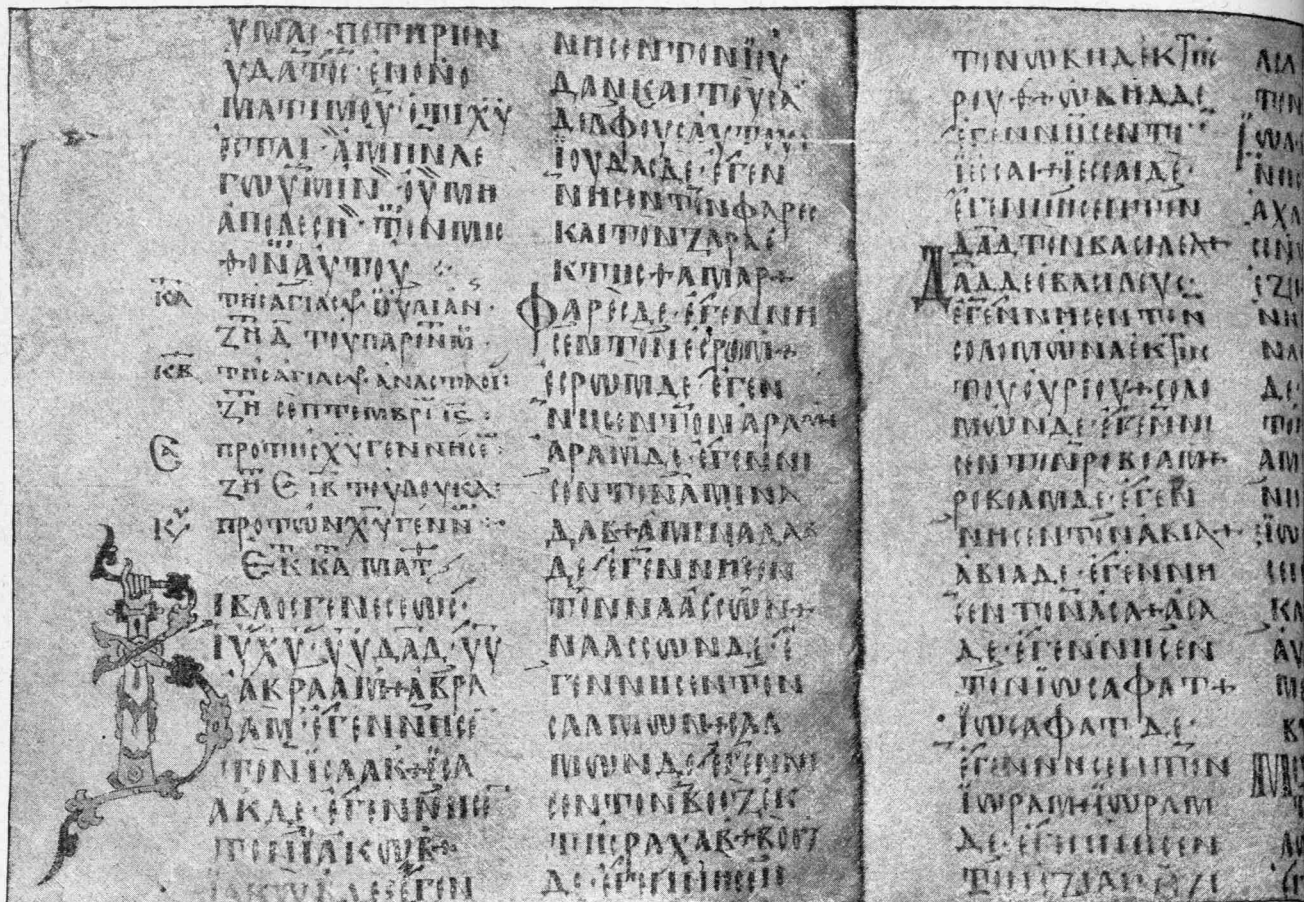 ΥΜΑΣ ΠΟΤΗΡΙΟΝ
ΥΔΑΤΟΣ ΕΝ ΟΝΟ
ΜΑΤΙ ΜΟΥ ΟΤΙ ΧΥ
ΕΣΤΑΙ ΑΜΗΝ ΛΕ
ΓΩ ΥΜΙΝ ΟΥ ΜΗ
ΑΠΟΛΕΣΗ ΤΟΝ ΜΙ
ΘΟΝ ΑΥΤΟΥ
ΚΑ ΤΗΣ ΑΓΙΑΣ ΙΟΥΛΙΑΝ
ΖΗ Δ ΤΟΥ
ΚΒ ΤΗΣ ΑΓΙΑΣ ΑΝΑΣΤΑΣΙ
ΖΗ ΣΕΠΤΕΜΒΡΙ ΙΣ
ΠΡΟ ΤΗΣ ΧΥ ΓΕΝΝΗΣΕ
ΖΗ ΤΟΥ ΛΟΥΚΑ
ΚΥ ΠΡΟ ΤΩΝ ΧΥ ΓΕΝΝ
ΕΚ Κ ΜΑΤ
ΒΙΒΛΟΣ ΓΕΝΕΣΕΩΣ
ΙΥ ΧΥ ΥΥ ΔΑΔ ΥΥ
ΑΒΡΑΑΜ + ΑΒΡΑ
ΑΜ ΕΓΕΝΝΗΣΕ
ΤΟΝ ΙΣΑΑΚ + ΙΣΑ
ΑΚ ΔΕ ΕΓΕΝΝΗΣΕ
ΤΟΝ ΙΑΚΩΒ +
ΙΑΚΩΒ ΔΕ ΕΓΕΝ
ΝΗΣΕΝ ΤΟΝ ΙΟΥ
ΔΑΝ ΚΑΙ ΤΟΥΣ Α
ΔΕΛΦΟΥΣ ΑΥΤΟΥ
ΙΟΥΔΑΣ ΔΕ ΕΓΕΝ
ΝΗΣΕΝ ΤΟΝ ΦΑΡΕΣ
ΚΑΙ ΤΟΝ ΖΑΡΑ Ε
Κ ΤΗΣ ΘΑΜΑΡ +
ΦΑΡΕΣ ΔΕ ΕΓΕΝΝΗ
ΣΕΝ ΤΟΝ ΕΣΡΩΜ +
ΕΣΡΩΜ ΔΕ ΕΓΕΝ
ΝΗΣΕΝ ΤΟΝ ΑΡΑΜ
ΑΡΑΜ ΔΕ ΕΓΕΝΝΗ
ΣΕΝ ΤΟΝ ΑΜΙΝΑ
ΔΑΒ + ΑΜΙΝΑΔΑΒ
ΔΕ ΕΓΕΝΝΗΣΕΝ
ΤΟΝ ΝΑΑΣΣΩΝ +
ΝΑΑΣΣΩΝ ΔΕ Ε
ΓΕΝΝΗΣΕΝ ΤΟΝ
ΣΑΛΜΩΝ + ΣΑΛ
ΜΩΝ ΔΕ ΕΓΕΝΝΗ
ΣΕΝ ΤΟΝ ΒΟΟΖ ΕΚ
ΤΗΣ ΡΑΧΑΒ + ΒΟΟΖ
ΔΕ ΕΓΕΝΝΗΣΕΝ
ΤΟΝ ΩΒΗΔ ΕΚ ΤΗΣ
ΡΟΥΘ + ΩΒΗΔ ΔΕ
ΕΓΕΝΝΗΣΕΝ ΤΟ
ΙΕΣΣΑΙ + ΙΕΣΣΑΙ ΔΕ
ΕΓΕΝΝΗΣΕΝ ΤΟΝ
ΔΑΔ ΤΟΝ ΒΑΣΙΛΕΑ +
ΔΑΔ ΔΕ Ο ΒΑΣΙΛΕΥΣ
ΕΓΕΝΝΗΣΕΝ ΤΟΝ
ΣΟΛΟΜΩΝΑ ΕΚ ΤΗΣ
ΤΟΥ ΟΥΡΙΟΥ + ΣΟΛΟ
ΜΩΝ ΔΕ ΕΓΕΝΝΗ
ΣΕΝ ΤΟΝ ΡΟΒΟΑΜ +
ΡΟΒΟΑΜ ΔΕ ΕΓΕΝ
ΝΗΣΕΝ ΤΟΝ ΑΒΙΑ +
ΑΒΙΑ ΔΕ ΕΓΕΝΝΗ
ΣΕΝ ΤΟΝ ΑΣΑ + ΑΣΑ
ΔΕ ΕΓΕΝΝΗΣΕΝ
ΤΟΝ ΙΩΣΑΦΑΤ +
ΙΩΣΑΦΑΤ ΔΕ
ΕΓΕΝΝΗΣΕΝ ΤΟΝ
ΙΩΡΑΜ + ΙΩΡΑΜ
ΔΕ ΕΓΕΝΝΗΣΕΝ